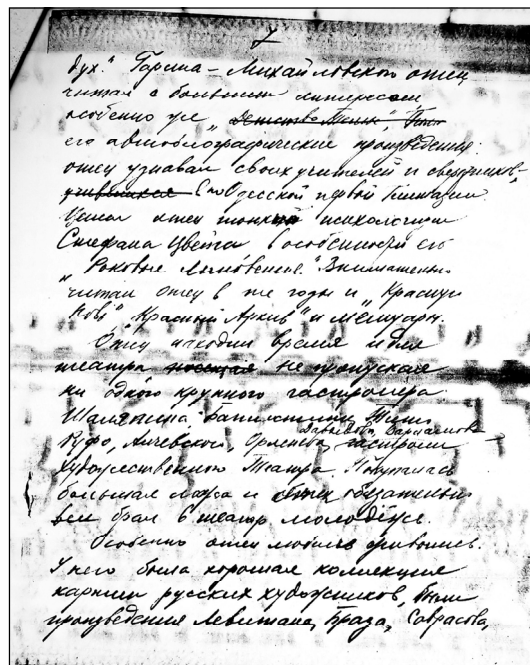 7
дух." Гарина-Михайловского отец
читал с большим интересом
особенно же "Детство Темы",
его автобиографические произведения:
отец узнавал своих учителей и сверстников
Одесской первой гимназии.
Ценил отец тонкий психологизм
Стефана Цвейга в особенности его
"Роковые мгновения". Внимательно
читал отец в те годы и "Красную
Новь" "Красный Архив" и мемуары.
Отец находил время и для
театра не пропуская
ни одного крупного гастролера
Шаляпина, Баттистини, Тито
Давыдова, Варламова
Руфо, Орленева, гастроли
Художественного Театра. Покупалась
большая ложа и обязательно
вел брал в театр молодёжь.
Особенно отец любил живопись.
У него была хорошая коллекция
картин русских художников, были
произведения Левитана, Браза, Саврасова,